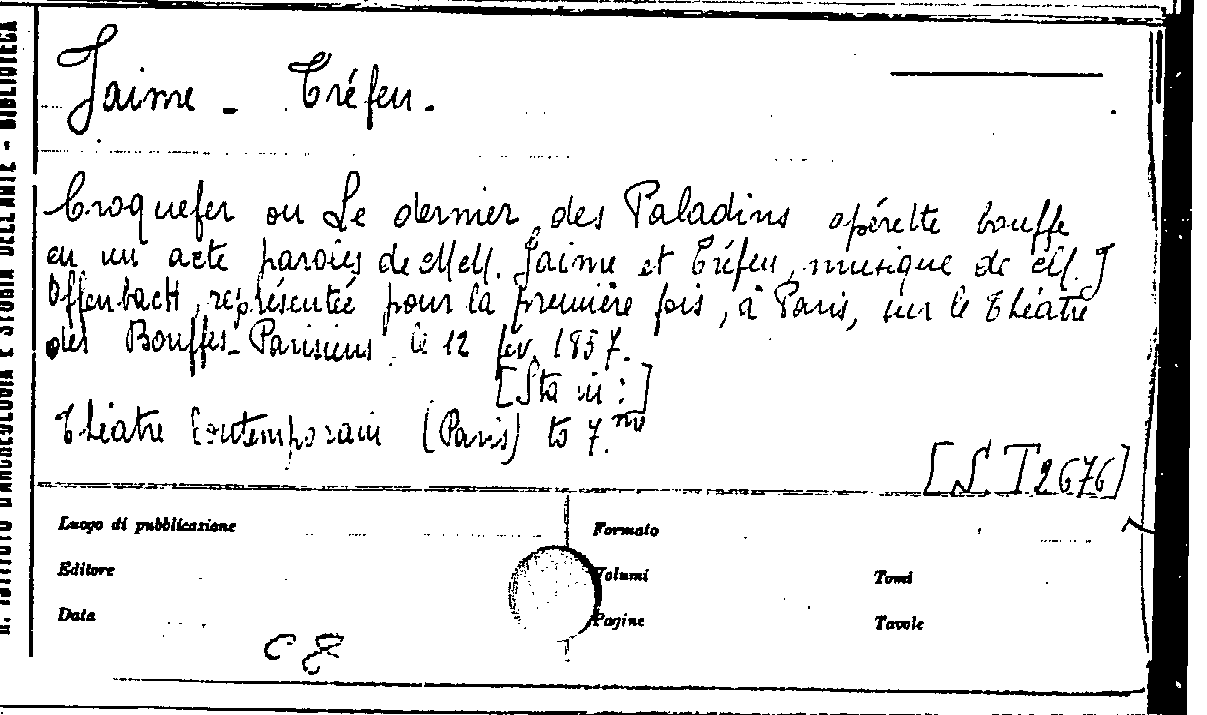 Jaime - Tréfeu.
Croquefer ou Le dernier des Paladins opérette bouffe
en un acte paroles de MM. Jaime et Tréfeu, musique de M. J
OffenbacH, représentée pour la première fois, à Paris, sur le théâtre
des Bouffes-Parisiens le 12 fév. 1857.
[Sta in:]
Théatre Contemporain (Paris) to 7.mo
[S. T 2676]
Luogo di pubblicazione
Formato
Editore
Volumi
Tomi
Data
Pagine
Tavole
R. ISTITUTO D'ARCHEOLOGIA E STORIA DELL'ARTE - BIBLIOTECA